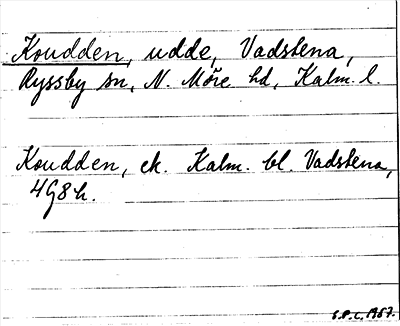 Koudden, udde, Vadstena,
Ryssby sn, N. Möre hd, Kalm. l.
Koudden, ek. Kalm. bl. Vadstena,
4G8h.
S.P.C. 1957.